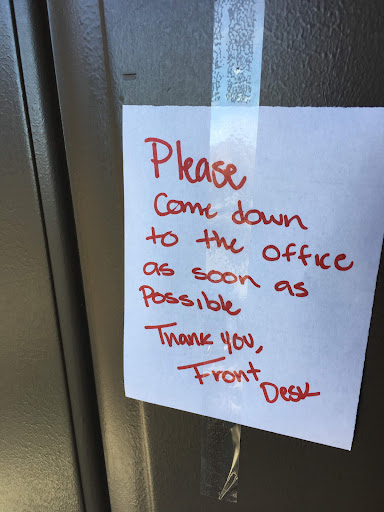 Please
Come down
to the office
as soon as
Possible
Thank you,
Front Desk